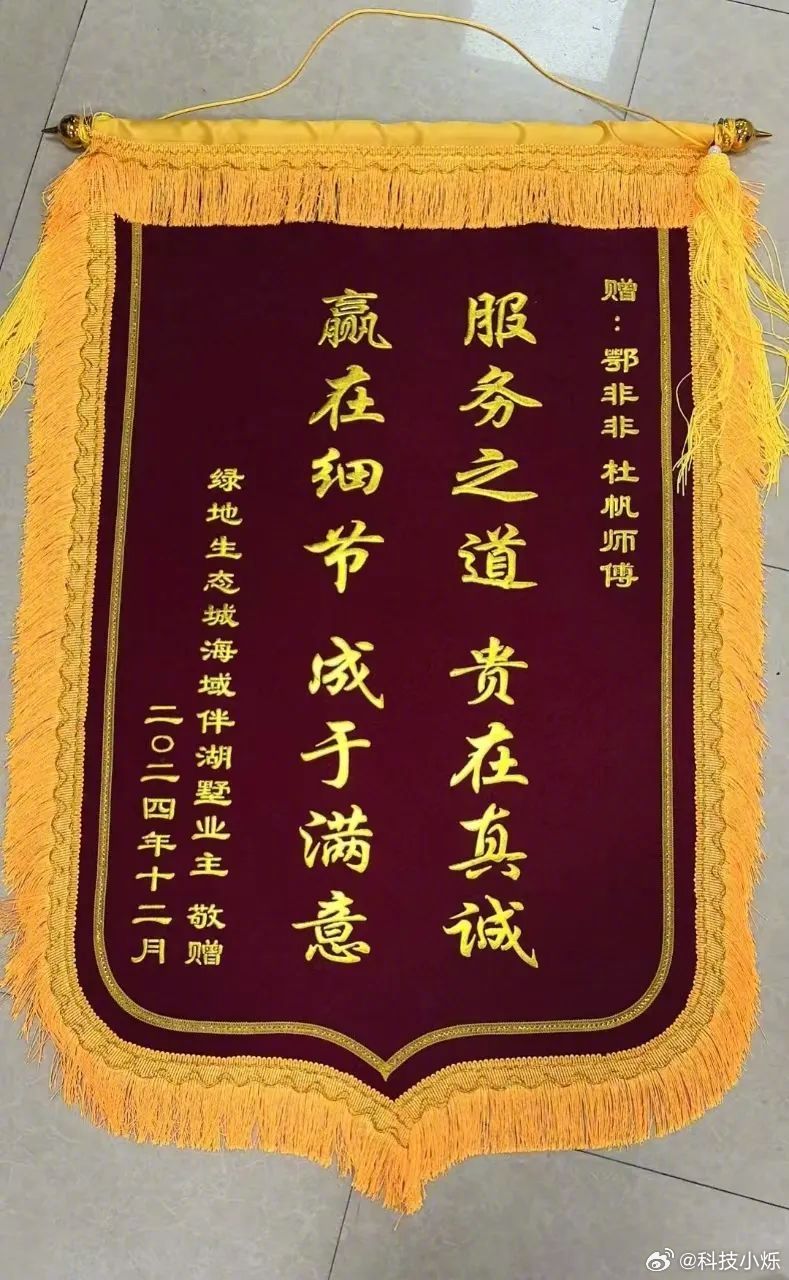 赠：鄂非非 杜帆师傅
服务之道 贵在真诚
赢在细节 成于满意
绿地生态城海域伴湖墅业主 敬赠
二〇二四年十二月
@科技小烁